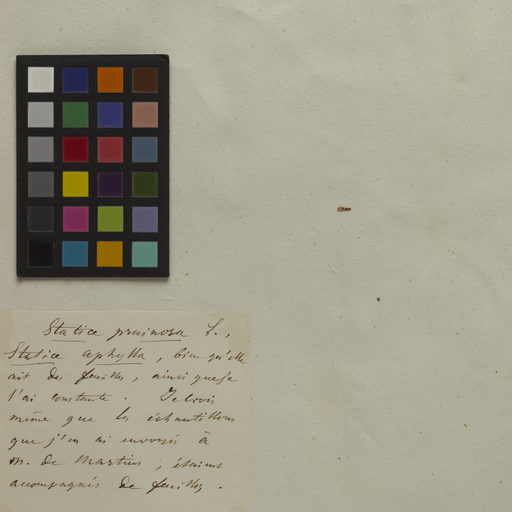 Statice pruinosa L.,
Statice aphylla, bien qu'elle
ait des feuilles, ainsi que je
l'ai constaté. Je crois
même que les échantillons
que j'en ai envoyés à
M. de Martius, étaient
accompagnés de feuilles.